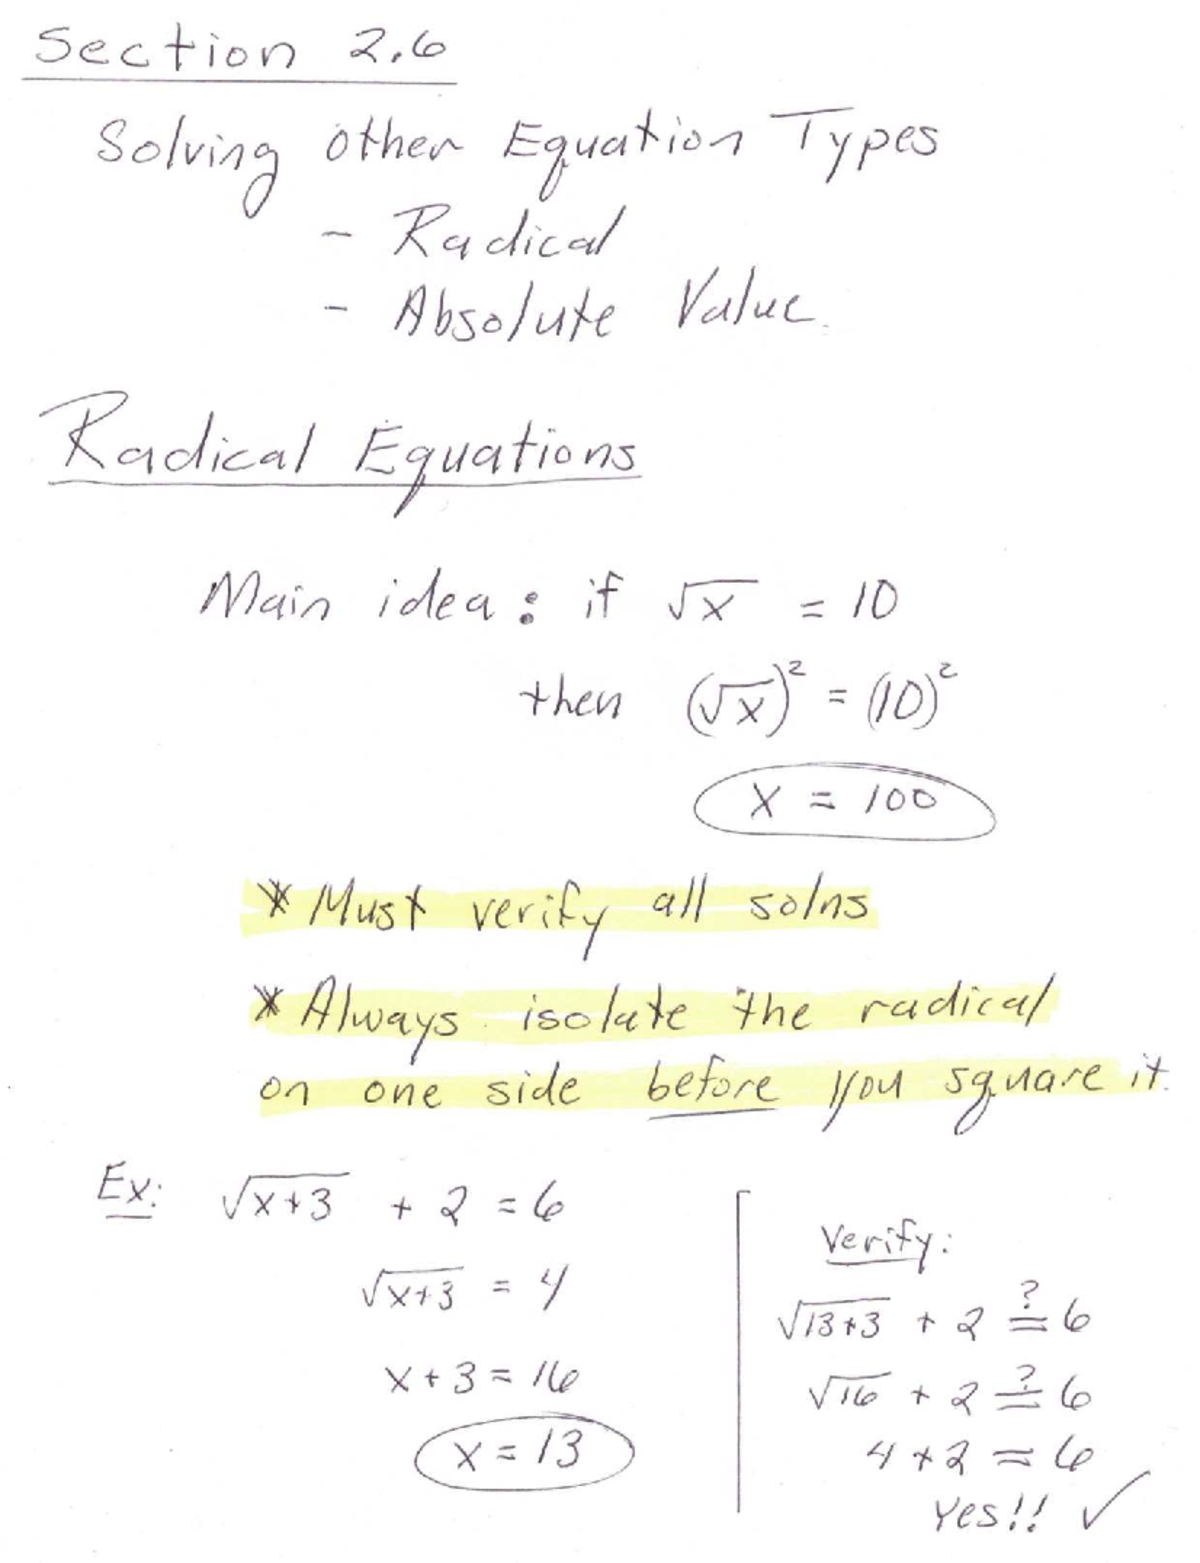 Section 2.6
Solving Other Equation Types
- Radical
- Absolute Value.
Radical Equations
Main idea: if √x = 10
then (√x)² = (10)²
x = 100
* Must verify all solns
* Always isolate the radical
on one side before you square it.
Ex: √x+3 + 2 = 6
√x+3 = 4
x + 3 = 16
x = 13
Verify:
√13+3 + 2 ?= 6
√16 + 2 ?= 6
4 + 2 = 6
Yes!! ✓